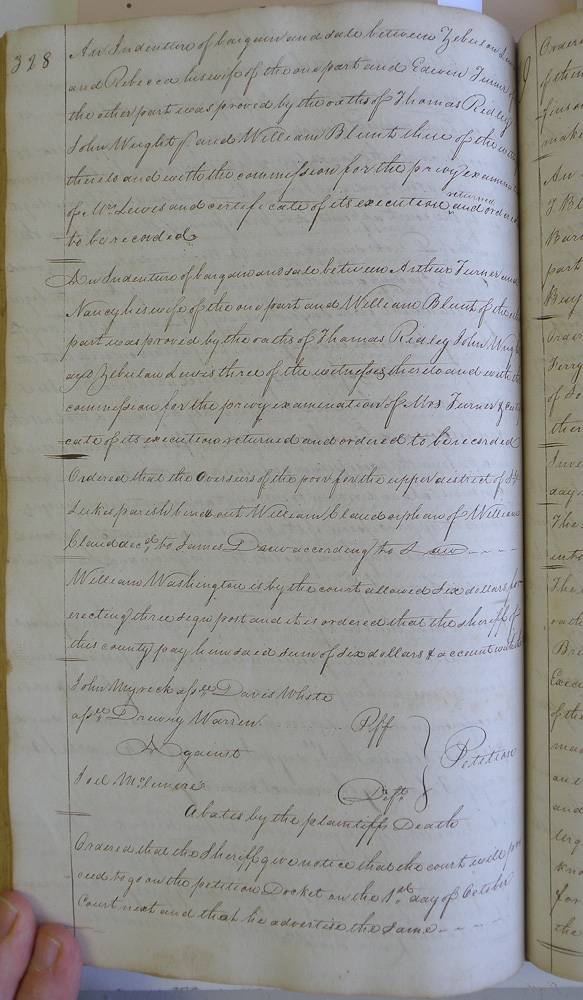 328
An Indenture of bargain and sale between Zebulon Lewis
and Rebecca his wife of the one part and Edwin Turner of
the other part was proved by the oaths of Thomas Ridley
John Wright and William Blunt three of the
thereto and with the commission for the privy
of Mrs Lewis and certificate of its execution returned and ordered
to be recorded
An Indenture of bargain and sale between Arthur Turner and
Nancy his wife of the one part and William Blunt of the
part was proved by the oaths of Thomas Ridley John
and Zebulon Lewis three of the witnesses thereto and with the
commission for the privy examination of Mrs Turner &
cate of its execution returned and ordered to be recorded
Ordered that the Overseers of the poor for the upper district of St
Lukes parish bind out William Claud orphan of William
Claud decd, to James Drew according to Law
William Washington is by the court allowed Six dollars for
erecting three sign post and it is ordered that the sheriff of
this county pay him said sum of Six dollars & account
John Myrick assee Davis White
assee Drewry Warren Plff
Against
Petition
Joel McLemore Deft
Abates by the plaintiffs Death
Ordered that the Sheriff give notice that the court will pro
ceed to go on the petition Docket on the 1st day of October
Court next and that he advertise the same